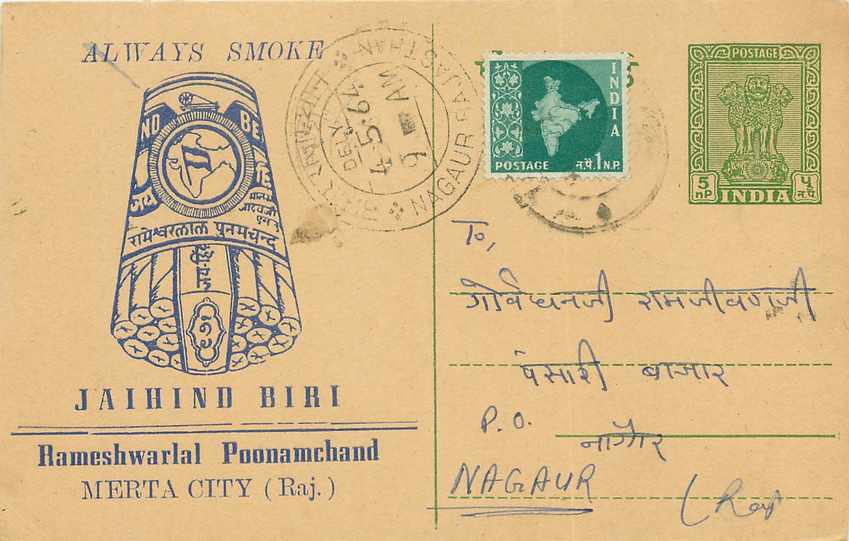 ALWAYS SMOKE
ND BE
रामेश्वरलाल पुनमचन्द
जय-हिन्द
JAIHIND BIRI
Rameshwarlal Poonamchand
MERTA CITY (Raj.)
NAGAUR RAJASTHAN
DELY.
4-5-64
9 AM
INDIA
POSTAGE न.पै.1 N.P.
POSTAGE
5 nP ५ न.पै.
INDIA
To,
गोर्वधनजी रामजीवणजी
पंसारी बाजार
P.O.
नागौर
NAGAUR
(Raj